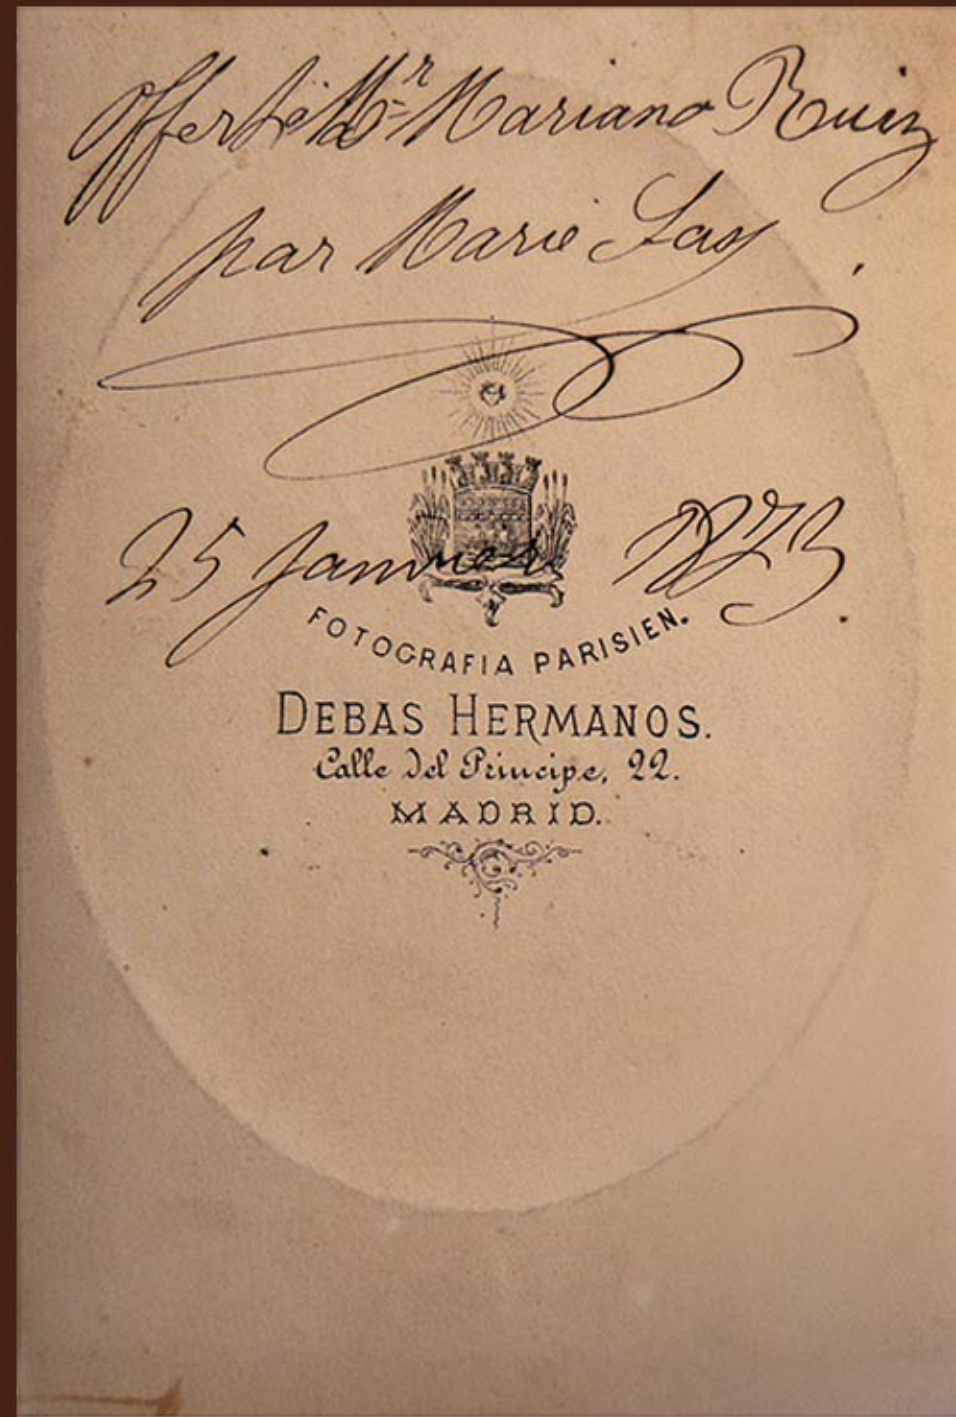 Offert à Mr Mariano Ruiz
par Marie Sass
25 Janvier 1873.
FOTOGRAFIA PARISIEN.
DEBAS HERMANOS.
Calle del Principe, 22.
MADRID.